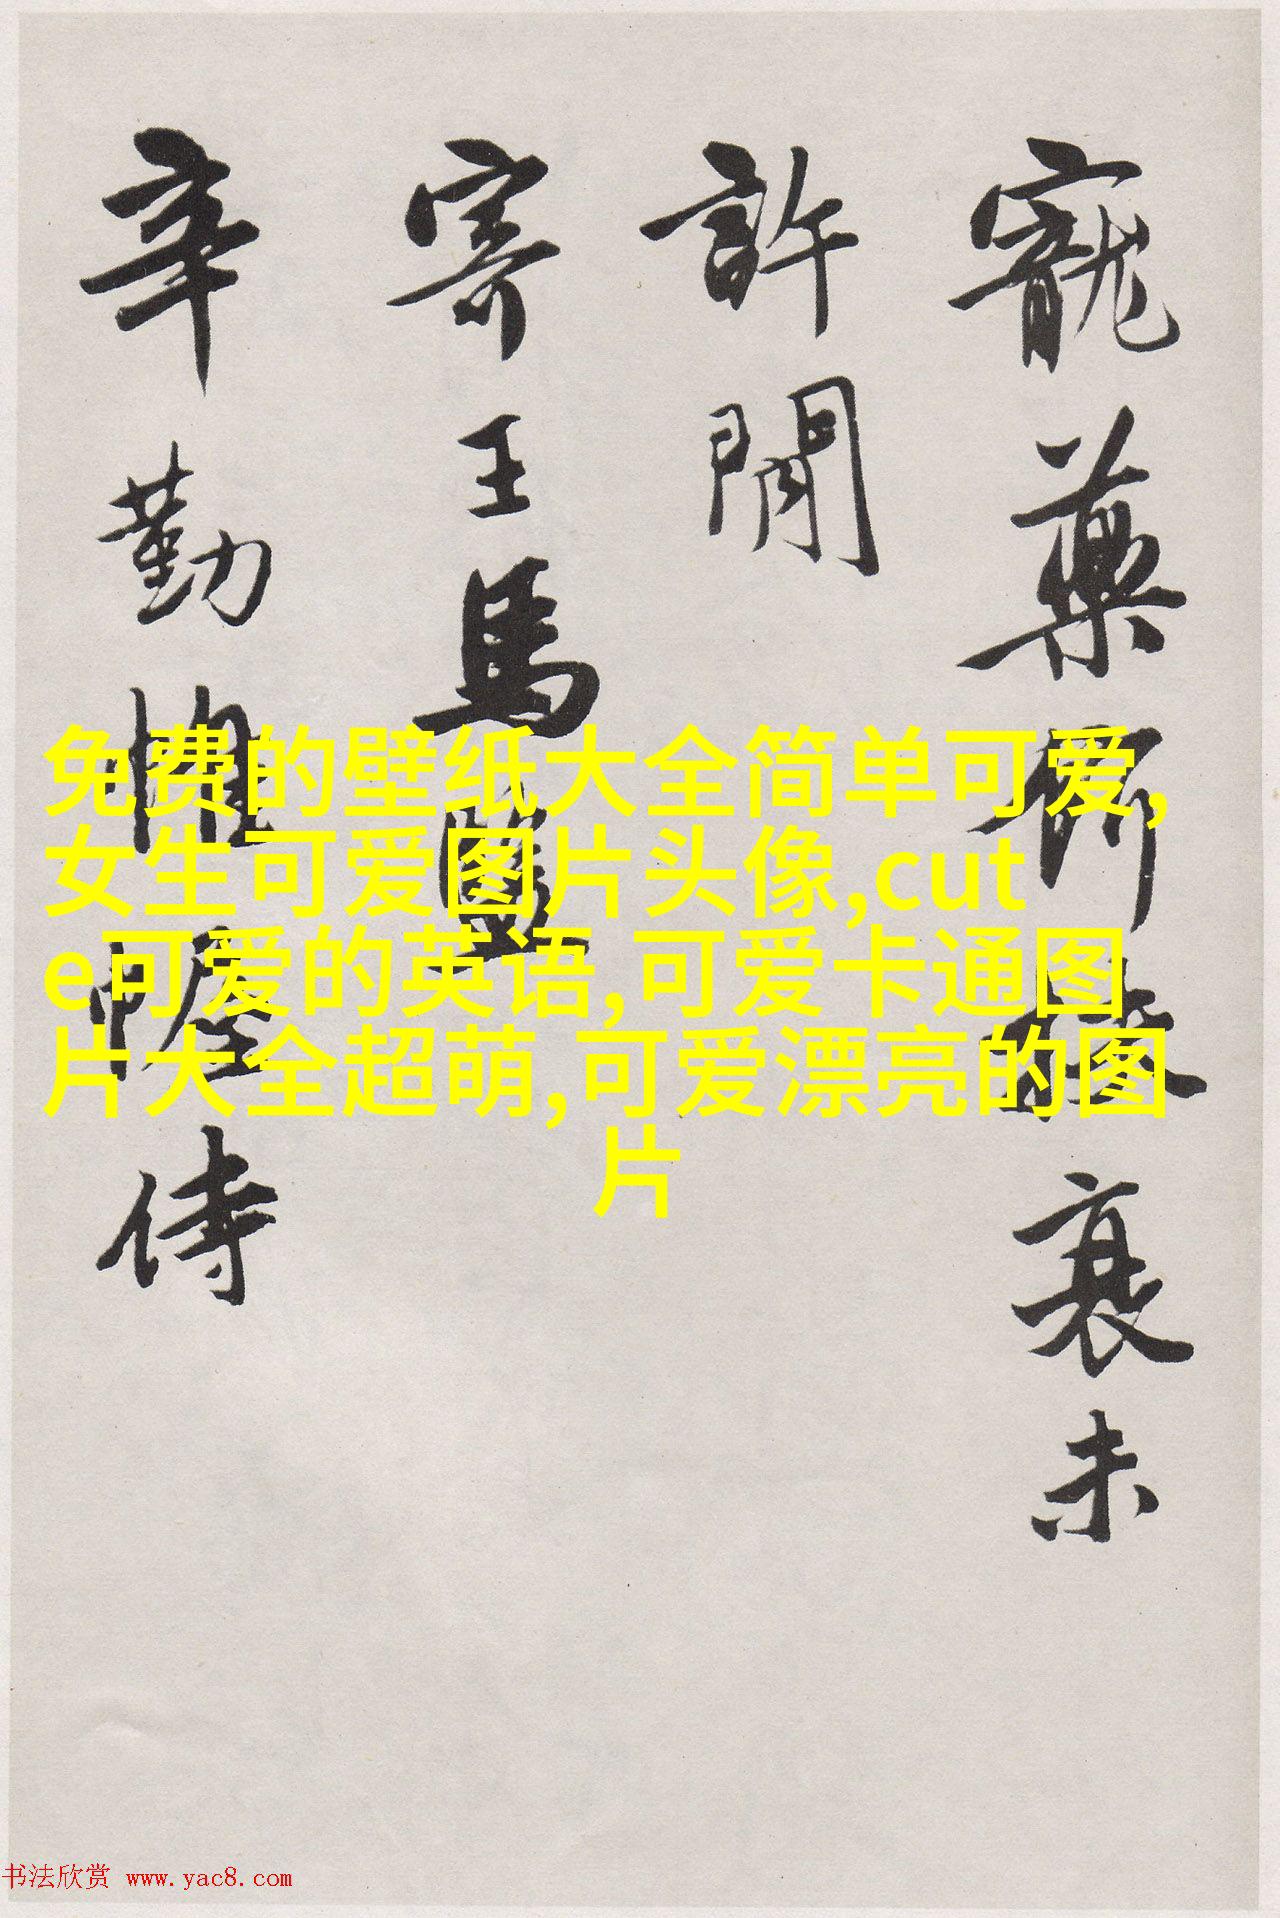 寵藥衰未
許閒
寄王馬
辛勤帷幄侍
免费的壁纸大全简单可爱,
女生可爱图片头像,cut
e可爱的英语,可爱卡通图
片大全超萌,可爱漂亮的图
片
书法欣赏 www.yac8.com